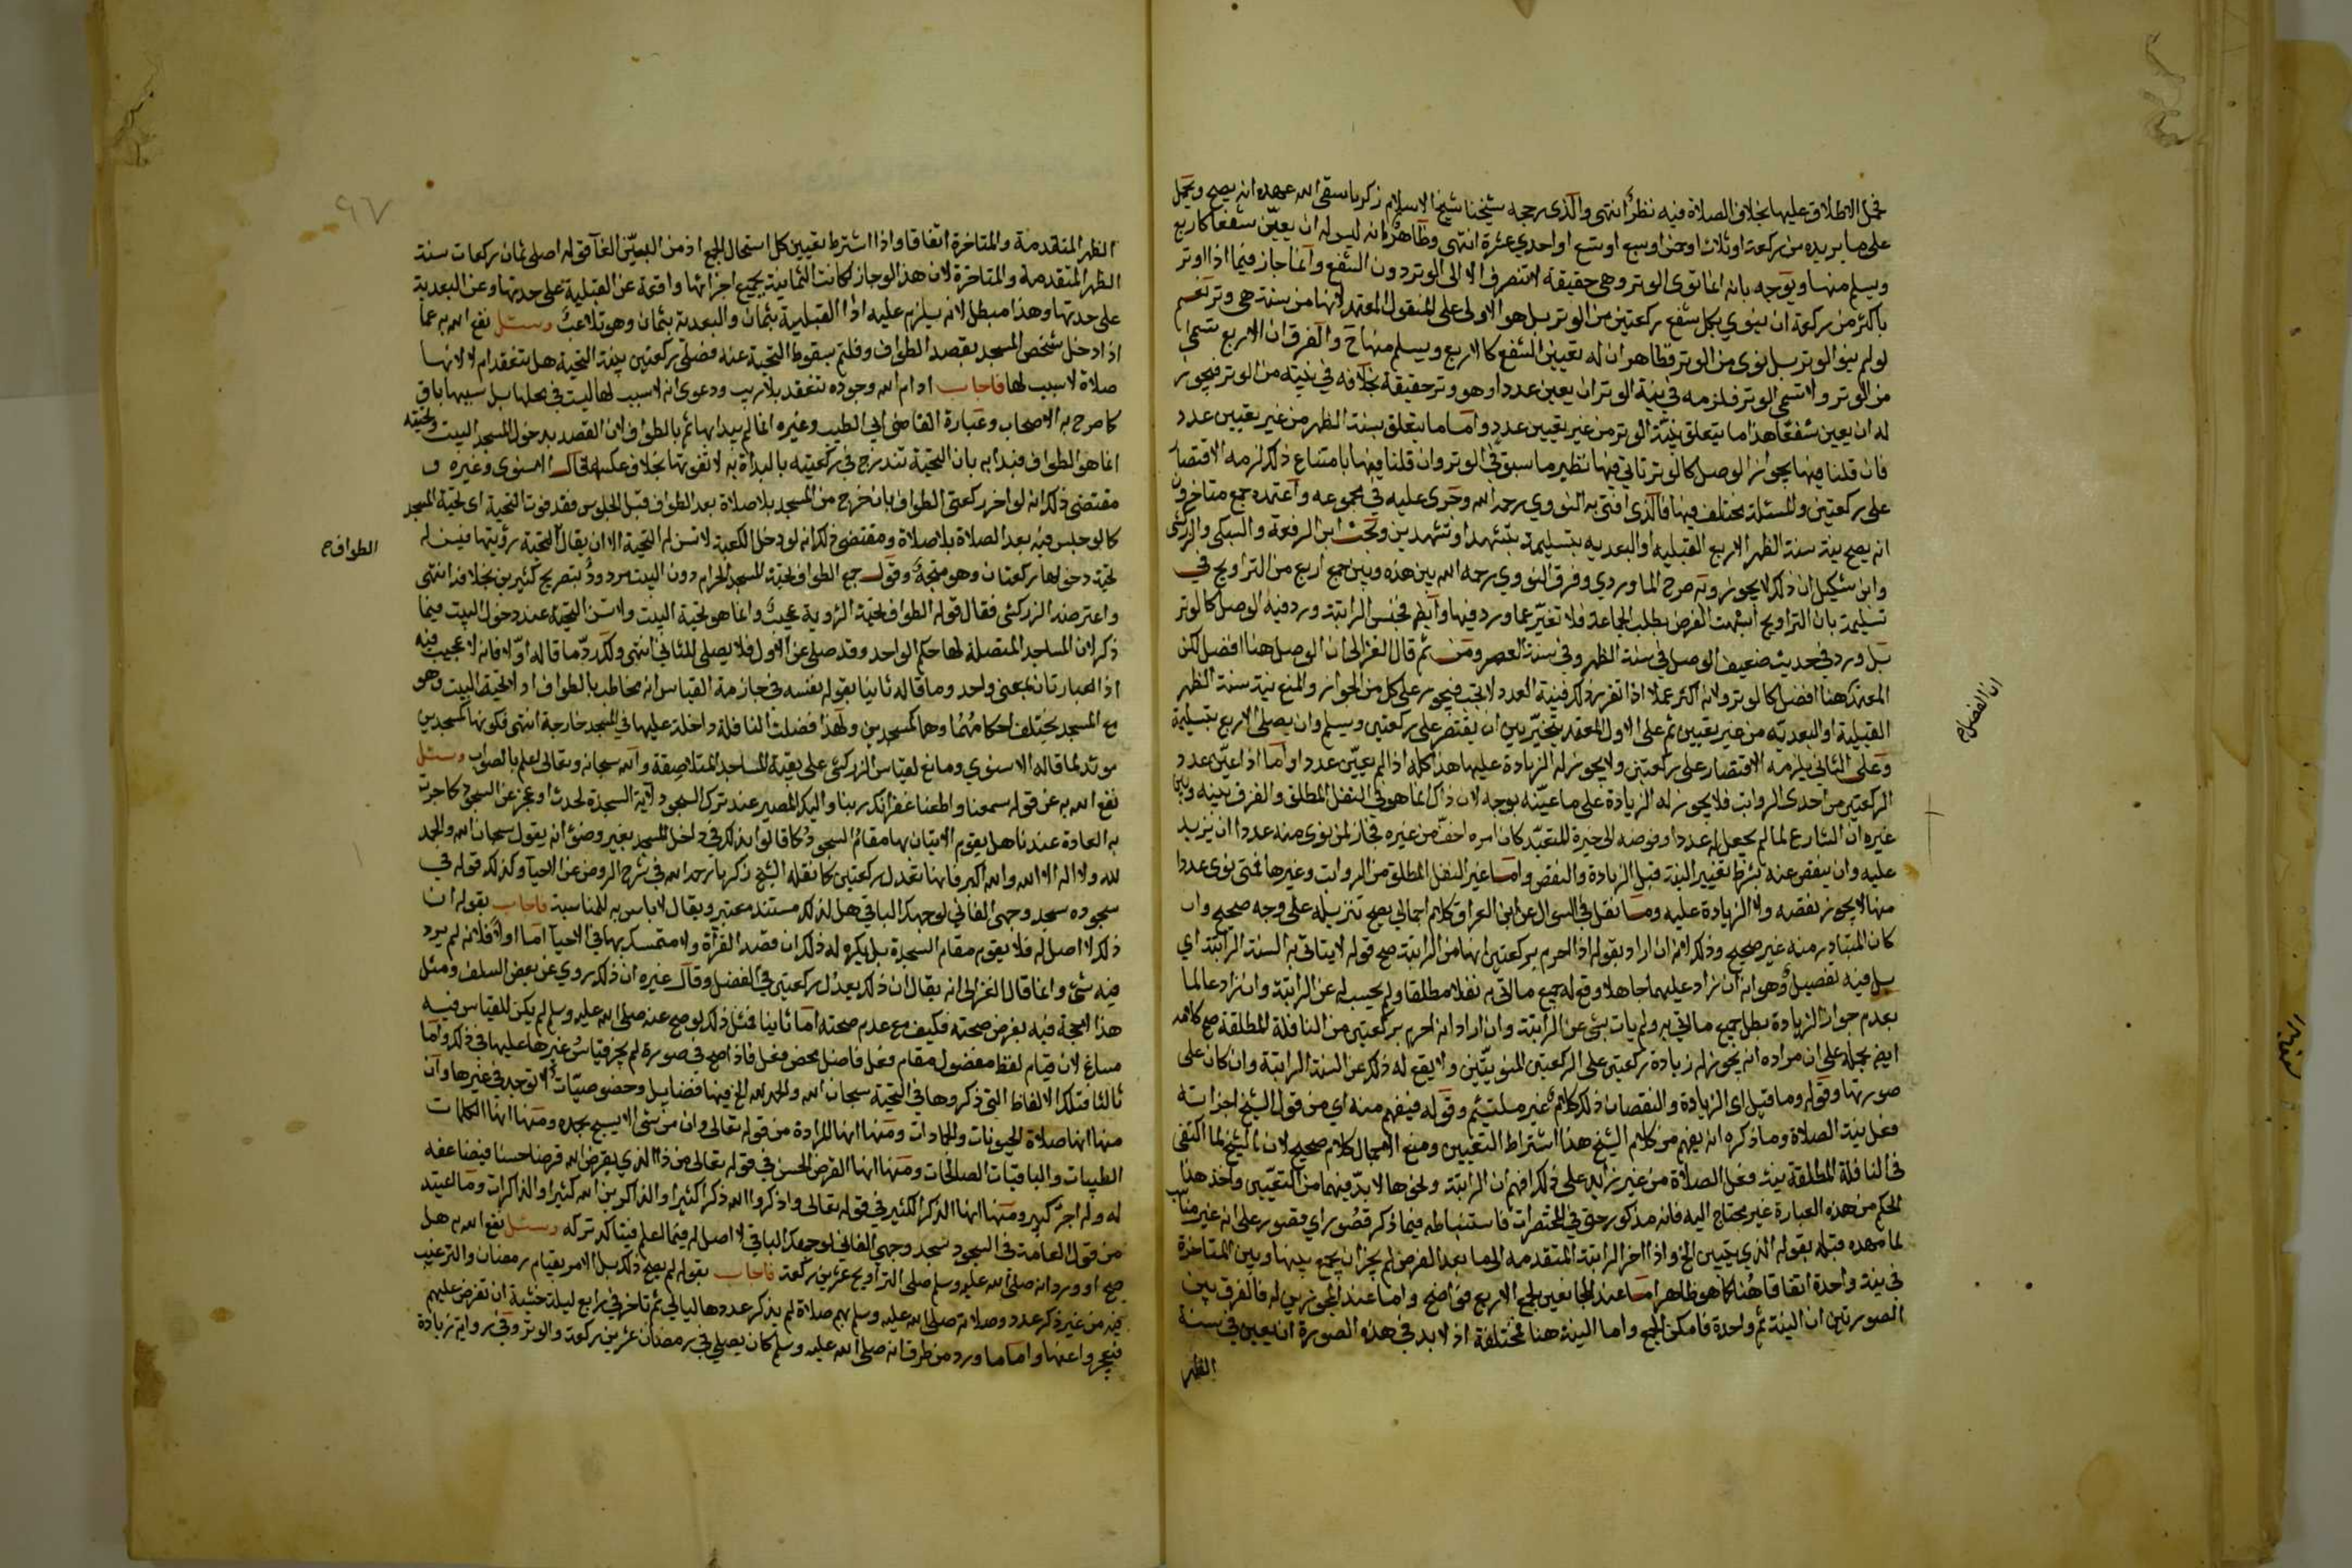 فحمل الاطلاق عليها بخلاف الصلاة فيه نظر انتهى والذي رجحه شيخنا شيخ الاسلام زكريا سقى الله عهده انه يصح ويحمل
على ما يريده من ركعة او ثلاث او خمس او سبع او تسع او احدى عشرة انتهى وظاهره انه ليس له ان يعين شفعا كاربع
ويسلم منها ويوجه بانه انما نوى الوتر وهي حقيقة لا تنصرف الا الى الوتر دون الشفع وانما جاز فيما اذا اوتر
باكثر من ركعة ان ينوي بكل شفع ركعتين من الوتر بل هو الاولى على المنقول المعتمد لانها من سنة هي وتر نعم
لو لم ينو الوتر بل نوى من الوتر فظاهر ان له تعيين الشفع كالاربع ويسلم منها ح والفرق ان الاربع تسمى
من الوتر ولا تسمى الوتر فلزمه في نية الوتر ان يعين عددا وهو وتر حقيقة بخلافه في نيته من الوتر فيجوز
له ان يعين شفعا هذا ما يتعلق بنية الوتر من غير تعيين عدد واما ما يتعلق بسنة الظهر من غير تعيين عدد
فان قلنا فيها بجواز الوصل كالوتر تاتي فيها نظير ما سبق في الوتر وان قلنا فيها بامتناع ذلك لزمه الاقتصار
على ركعتين والمسئلة مختلف فيها فالذي افتى به النووي رحمه الله وجرى عليه في مجموعه واعتمده جمع متاخرون
انه يصح نية سنة الظهر الاربع القبلية او البعدية بتسليمة بتشهد او تشهدين وبحث ابن الرفعة والسبكي والزركشي
وابن شكيل ان ذلك لا يجوز وبه صرح الماوردي وفرق النووي رحمه الله بين هذه وبين جمع اربع من التراويح في
تسليمة بان التراويح اشبهت الفرض بطلب الجماعة فلا تغير عما ورد فيها وايضا فجنس الراتبة ورد فيه الوصل كالوتر
بل ورد في حديث ضعيف الوصل في سنة الظهر وفي سنة العصر ومن ثم قال الغزالي ان الوصل هنا افضل لكن
المعتمد هنا افضل كالوتر ولانه اكثر عملا اذا تقرر ذلك فنية العدد لا تجب فيجوز على كل من الجواز والمنع نية سنة الظهر
ان الفصل ح
القبلية او البعدية من غير تعيين ثم على الاول المعتمد يتخير بين ان يقتصر على ركعتين ويسلم وان يصلي الاربع بتسليمة
وعلى الثاني يلزمه الاقتصار على ركعتين ولا يجوز له الزيادة عليها هذا كله اذا لم يعين عددا واما اذا عين عدد
الركعتين من احدى الرواتب فلا يجوز له الزيادة على ما عينه بوجه لان ذاك انما هو في النفل المطلق والفرق بينه وبين
غيره ان الشارع لما لم يجعل له عددا وفوضه الى خيرة المتعبد كان امره اخف من غيره فجاز لمن نوى منه عددا ان يزيد
عليه وان ينقص عنه بشرط تغيير النية قبل الزيادة والنقص واما غير النفل المطلق من الرواتب وغيرها فمتى نوى عددا
منها لا يجوز نقصه ولا الزيادة عليه وما نقل في السؤال عن ابن العراق كلام اجمالي يصح تنزيله على وجه صحيح وان
كان المتبادر منه غير صحيح وذلك لانه ان اراد بقوله اذا احرم بركعتين انها من الراتبة صح قوله لا يتاتى به السنة الراتبة اي
بل فيه تفصيل وهو انه ان زاد عليهما جاهلا وقع له جميع ما اتى به نفلا مطلقا ولم يحسب له عن الراتبة وان زاد عالما
بعدم جواز الزيادة بطل جميع ما اتى به ولم يات بشئ عن الراتبة وان اراد انه احرم بركعتين من النافلة المطلقة صح كلامه
ايضا بحمله على ان مراده انه يجوز له زيادة ركعتين على الركعتين المنويتين ولا يقع له ذلك عن السنة الراتبة وان كان على
صورتها وقوله وما قبل اي الزيادة والنقصان ذلك كلام غير ملتئم وقوله فيفهم منه اي من قول الشيخ اجزاته
فعل نية الصلاة وما ذكره انه يفهم من كلام الشيخ هذا اشتراط التعيين ومنع الاجمال كلام صحيح لان الشيخ لما اكتفى
في النافلة المطلقة بنية فعل الصلاة من غير زايد على ذلك افهم ان الراتبة ونحوها لا بد فيهما من التعيين واخذ هذا
الحكم من هذه العبارة غير محتاج اليه فانه مذكور حتى في المختصرات فاستنباطه فيما ذكر قصور اي قصور على انه غير مناسب
لما مهده قبله بقوله الذي يتبين الخ واذا اخر الراتبة المتقدمة الى ما بعد الفرض لم يجز ان يجمع بينها وبين المتاخرة
في نية واحدة اتفاقا هنا كما هو ظاهر اما عند المانعين لجمع الاربع فواضح واما عند المجوزين له فالفرق بين
الصورتين ان النية ثم واحدة فامكن الجمع واما النية هنا مختلفة اذ لا بد في هذه الصورة ان يعين في سنة
الظهر
٩٧
الظهر المتقدمة والمتاخرة اتفاقا واذا اشترط تعيين كل استحال الجمع اذ من البعيد الغاء قوله اصلي ثمان ركعات سنة
الظهر المتقدمة والمتاخرة لان هذا لو جاز لكانت الثمانية بجميع اجزائها واقعة عن القبلية على حدتها وعن البعدية
على حدتها وهذا مبطل لانه يلزم عليه اذا القبلية بثمان والبعدية بثمان وهو تلاعب وسئل نفع الله به عما
اذا دخل شخص المسجد بقصد الطواف وقلتم بسقوط التحية عنه فصلى ركعتين بنية التحية هل تنعقد ام لا لانها
صلاة لا سبب لها فاجاب ادام الله وجوده تنعقد بلا ريب ودعوى انه لا سبب لها ليست في محلها بل سببها باق
كما صرح به الاصحاب وعبارة القاضي ابي الطيب وغيره انما لم يبدا بها ثم بالطواف لان القصد بدخول المسجد البيت وتحيته
انما هو الطواف فبدا به بان التحية تندرج في ركعتيه بالبداة به لا تفوتها بخلاف عكسه قال الاسنوي وغيره و
مقتضى ذلك انه لو اخر ركعتي الطواف بان خرج من المسجد بلا صلاة بعد الطواف قبل الجلوس فقد فوت التحية اي تحية المسجد
كما لو جلس فيه بعد الصلاة بلا صلاة ومقتضى ذلك انه لو دخل الكعبة لا تسن له التحية الا ان يقال التحية رؤيتها فيسن له
الطواف ح
تحية دخولها ركعتان وهو متجه وقول جمع الطواف تحية المسجد الحرام دون البيت مردود بتصريح كثيرين بخلافه انتهى
واعترضه الزركشي فقال قوله الطواف تحية الرؤية عجيب وانما هو تحية البيت ولا تسن التحية عند دخول البيت فيما
ذكر لان المساجد المتصلة لها حكم الواحد وقد صلى عن الاول فلا يصلي للثاني انتهى ولك رد ما قاله اولا فانه لا عجيب فيه
اذ العبارتان بمعنى واحد وما قاله ثانيا بقوله نفسه في خادمه القياس انه مخاطب بالطواف او لا تحية البيت وهو
مع المسجد يختلف احكامهما وهما كمسجدين ولهذا فضلت النافلة داخله عليها في المسجد خارجه انتهى فكونها كمسجدين
مؤيد لما قاله الاسنوي ومانع لقياس الزركشي على بقية المساجد المتلاصقة والله سبحانه وتعالى اعلم بالصواب وسئل
نفع الله به عن قوله سمعنا واطعنا غفرانك ربنا واليك المصير عند ترك السجود لاية السجدة لحدث او عجز عن السجود كما جرت
به العادة عندنا هل يقوم الاتيان بها مقام السجود كما قالوا بذلك في داخل المسجد بغير وضوء انه يقول سبحان الله والحمد
لله ولا اله الا الله والله اكبر فانها تعدل ركعتين كما نقله الشيخ زكريا رحمه الله في شرح الروض عن الاحيا وكذلك قوله في
سجوده سجد وجهي الفاني لوجهك الباقي هل لذلك مستند معتبر ويقال لا باس به للمناسبة فاجاب بقوله ان
ذلك لا اصل له فلا يقوم مقام السجدة بل يكره له ذلك ان قصد القرأة ولا متمسك بما في الاحيا اما اولا فلانه لم يرد
فيه شئ وانما قال الغزالي انه يقال ان ذلك يعدل ركعتين في الفضل وقال غيره ان ذلك روي عن بعض السلف ومثل
هذا لا حجة فيه بفرض صحته فكيف مع عدم صحته اما ثانيا فمثل ذلك لو صح عنه صلى الله عليه وسلم لم يكن للقياس فيه
مساغ لان قيام لفظ مفضول مقام فعل فاضل محض فضل فاذا صح في صورة لم يجز قياس غيرها عليها في ذلك واما
ثالثا فتلك الالفاظ التي ذكروها في التحية سبحان الله والحمد لله الخ فيها فضايل وخصوصيات لا توجد في غيرها وان
منها انها صلاة الحيوانات والجمادات ومنها انها المرادة من قوله تعالى وان من شئ الا يسبح بحمده ومنها انها الكلمات
الطيبات والباقيات الصالحات ومنها انها القرض الحسن في قوله تعالى من ذا الذي يقرض الله قرضا حسنا فيضاعفه
له وله اجر كبير ومنها انها الذكر الكثير في قوله تعالى واذكروا الله ذكرا كثيرا والذاكرين الله كثيرا والذاكرات وما اعتيد
من قول العامة في السجود سجد وجهي الفاني لوجهك الباقي لا اصل له فيما اعلم فيتاكد تركه وسئل نفع الله به هل
صح او ورد انه صلى الله عليه وسلم صلى التراويح عشرين ركعة فاجاب بقوله لم يصح ذلك بل الامر بقيام رمضان والترغيب
فيه من غير ذكر عدد وصلاته صلى الله عليه وسلم بهم صلاة لم يذكر عددها ليالي ثم تاخر في رابع ليلة خشية ان تفرض عليهم
فيعجزوا عنها واما ما ورد من طرق انه صلى الله عليه وسلم كان يصلي في رمضان عشرين ركعة والوتر وفي رواية زيادة